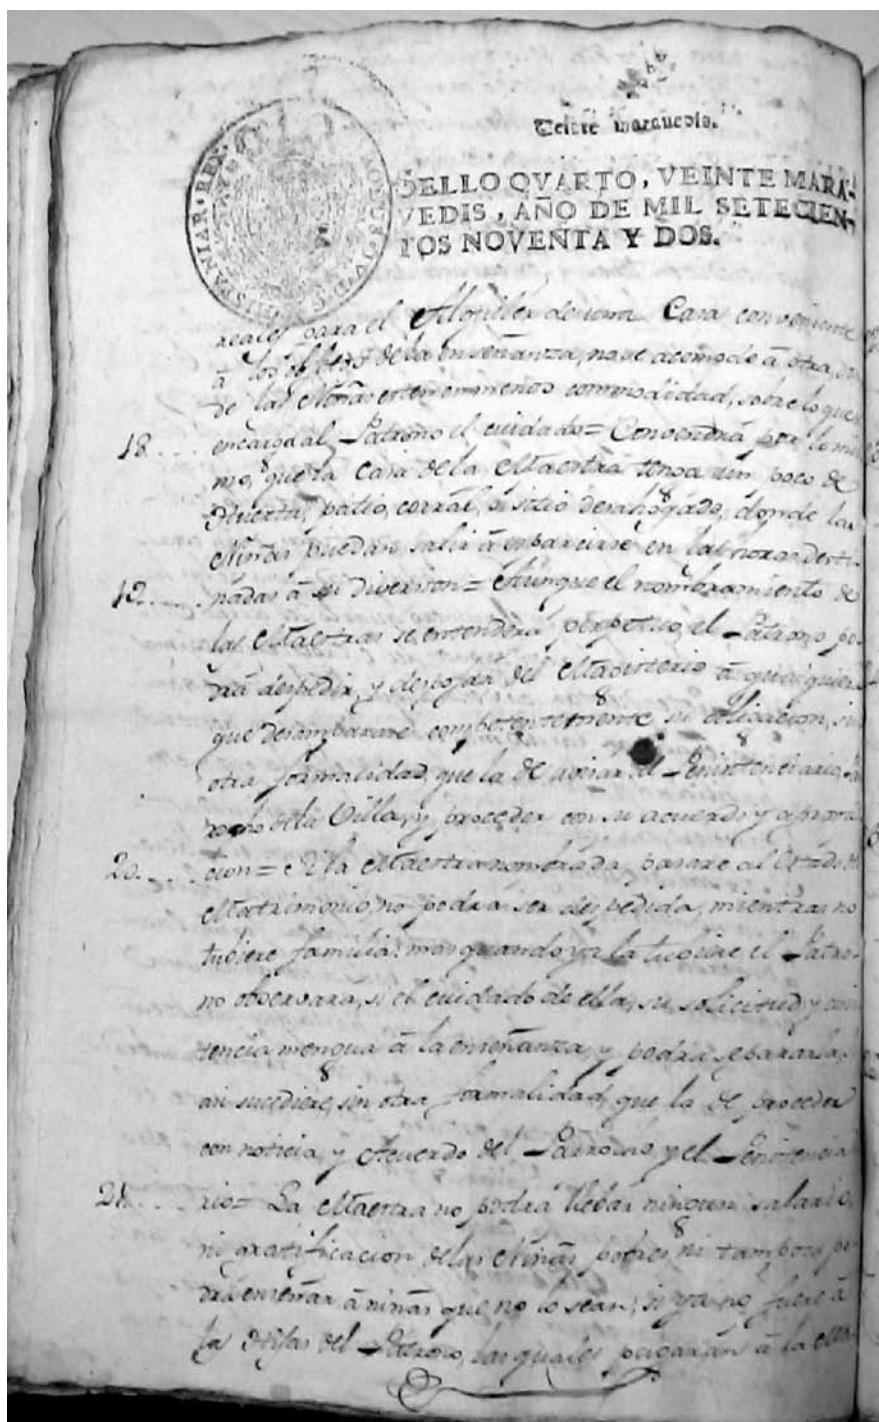 HISPANIAR. REX
Veinte maravedis.
SELLO QVARTO, VEINTE MARA-
VEDIS, AÑO DE MIL SETECIEN-
TOS NOVENTA Y DOS.
reales para el Alquiler de una Casa conveniente
à los de la enseñanza, no se acomode à otra,
de las Niñas commodidad, sobre lo que
18.... encarga al Patrono el cuidado= Convendrá por lo mis
mo, que la Casa de la Maestra tenga un poco de
Huerta, patio, corral, ù sitio desahogado, donde las
Niñas puedan salir à esparcirse en las horas desti
19.... nadas à su diversion= Aunque el nombramiento de
las Maestras se entenderá perpetuo, el Patrono po
drá despedir, y despojar del Magisterio à
que desamparare competentemente su obligacion, sin
otra formalidad, que la de avisar al Penitenciario, Pa
rroco de la Villa, y proceder con su acuerdo y aprova
20.... cion= Si la Maestra nombrada, pasare al Estado de
Matrimonio, no podrá ser despedida, mientras no
tubiere familia: mas quando ya la tubiere el Patro-
no observará, si el cuidado de ella, su solicitud y
mengua à la enseñanza, y podrá separarla, si
asi sucediere, sin otra formalidad, que la de proceder
con noticia, y Acuerdo del Parroco, y el Penitencia
21.... rio= La Maestra no podrá llebar ningun salario,
ni gratificacion de las Niñas pobres, ni tampoco po
drá enseñar à niñas que no lo sean, si ya no fuere à
las Hijas del Patrono, las quales pagarán à la Maes